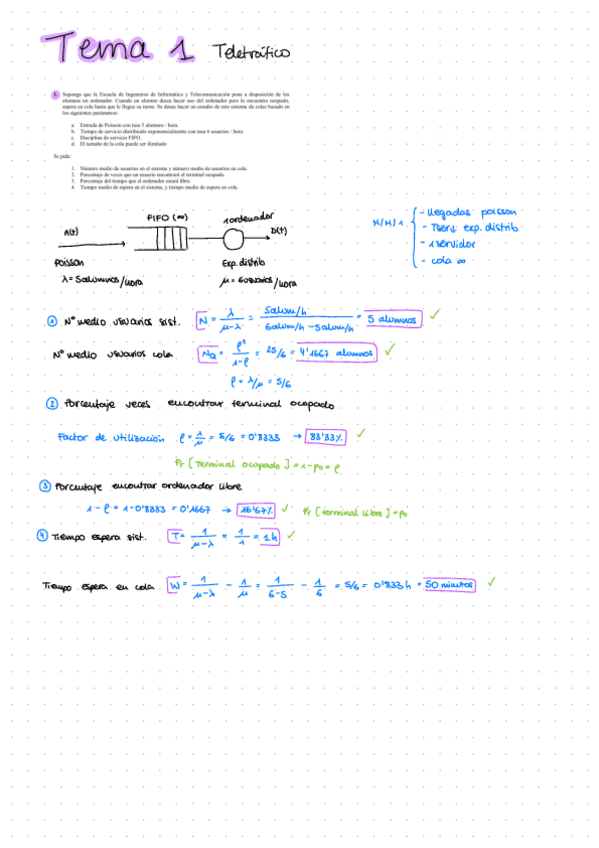 Tema 1 Teletráfico
6. Suponga que la Escuela de Ingenieros de Informática y Telecomunicación pone a disposición de los
alumnos un ordenador. Cuando un alumno desea hacer uso del ordenador pero lo encuentra ocupado,
espera en cola hasta que le llegue su turno. Se desea hacer un estudio de este sistema de colas basado en
los siguientes parámetros:
a. Entrada de Poisson con tasa 5 alumnos / hora.
b. Tiempo de servicio distribuido exponencialmente con tasa 6 usuarios / hora.
c. Disciplina de servicio FIFO.
d. El tamaño de la cola puede ser ilimitado
Se pide:
1. Número medio de usuarios en el sistema y número medio de usuarios en cola.
2. Porcentaje de veces que un usuario encontrará el terminal ocupado.
3. Porcentaje del tiempo que el ordenador estará libre.
4. Tiempo medio de espera en el sistema, y tiempo medio de espera en cola.
FIFO (∞) 1 ordenador
A(t) D(t)
Poisson Exp. distrib
λ = 5 alumnos/hora μ = 6 usuarios/hora
M/M/1 { - llegadas poisson
- Tserv. exp. distrib
- 1 servidor
- cola ∞
① Nº medio usuarios sist. N = λ/(μ-λ) = 5 alum/h / (6 alum/h - 5 alum/h) = 5 alumnos ✓
Nº medio usuarios cola NQ = ρ²/(1-ρ) = 25/6 = 4'1667 alumnos ✓
ρ = λ/μ = 5/6
② Porcentaje veces encontrar terminal ocupado
Factor de utilización ρ = λ/μ = 5/6 = 0'8333 → 83'33% ✓
Pr [terminal ocupado] = 1-p₀ = ρ
③ Porcentaje encontrar ordenador libre
1-ρ = 1-0'8333 = 0'1667 → 16'67% ✓ Pr [terminal libre] = p₀
④ Tiempo espera sist. T = 1/(μ-λ) = 1/1 = 1h ✓
Tiempo espera en cola W = 1/(μ-λ) - 1/μ = 1/(6-5) - 1/6 = 5/6 = 0'833 h = 50 minutos ✓